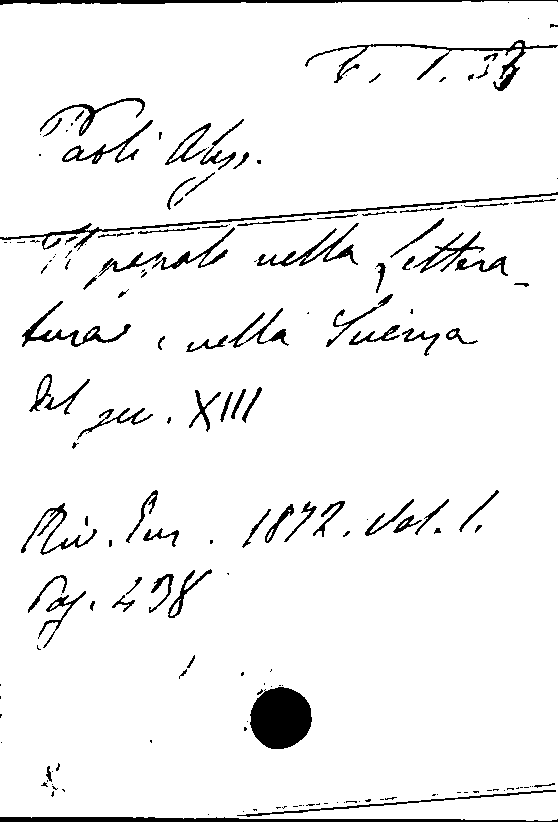 6. 1. 33
Paoli Aless.
Il papato nella Lettera-
tura e nella Scienza
del sec. XIII
Riv. Eur. 1872. Vol. 1.
Pag. 238